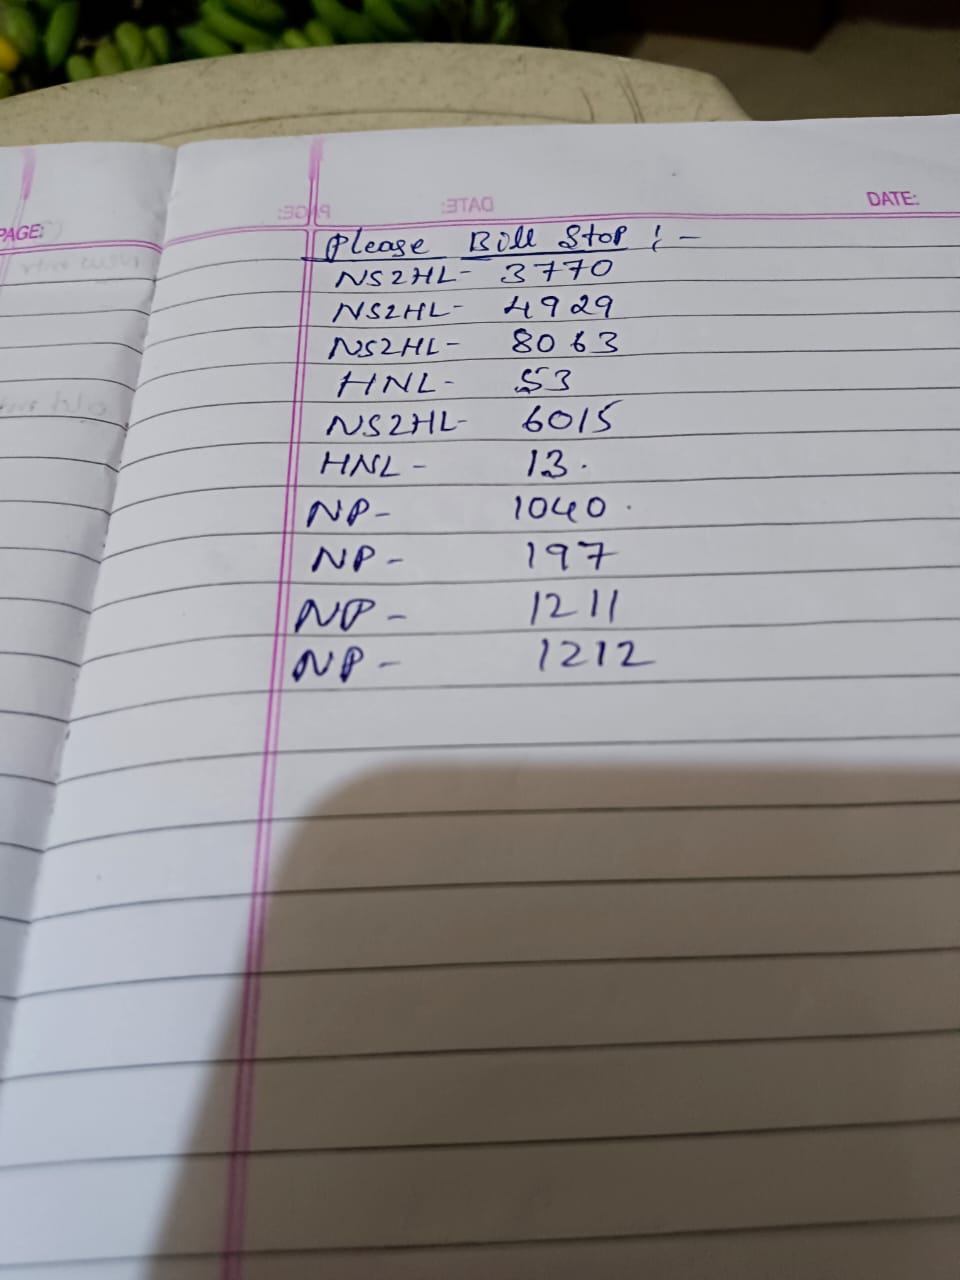 PAGE:
DATE:
Please Bill Stop :-
NS2HL- 3770
NS2HL- 4929
NS2HL- 8063
HNL- 53
NS2HL- 6015
HNL- 13.
NP- 1040.
NP- 197
NP- 1211
NP- 1212